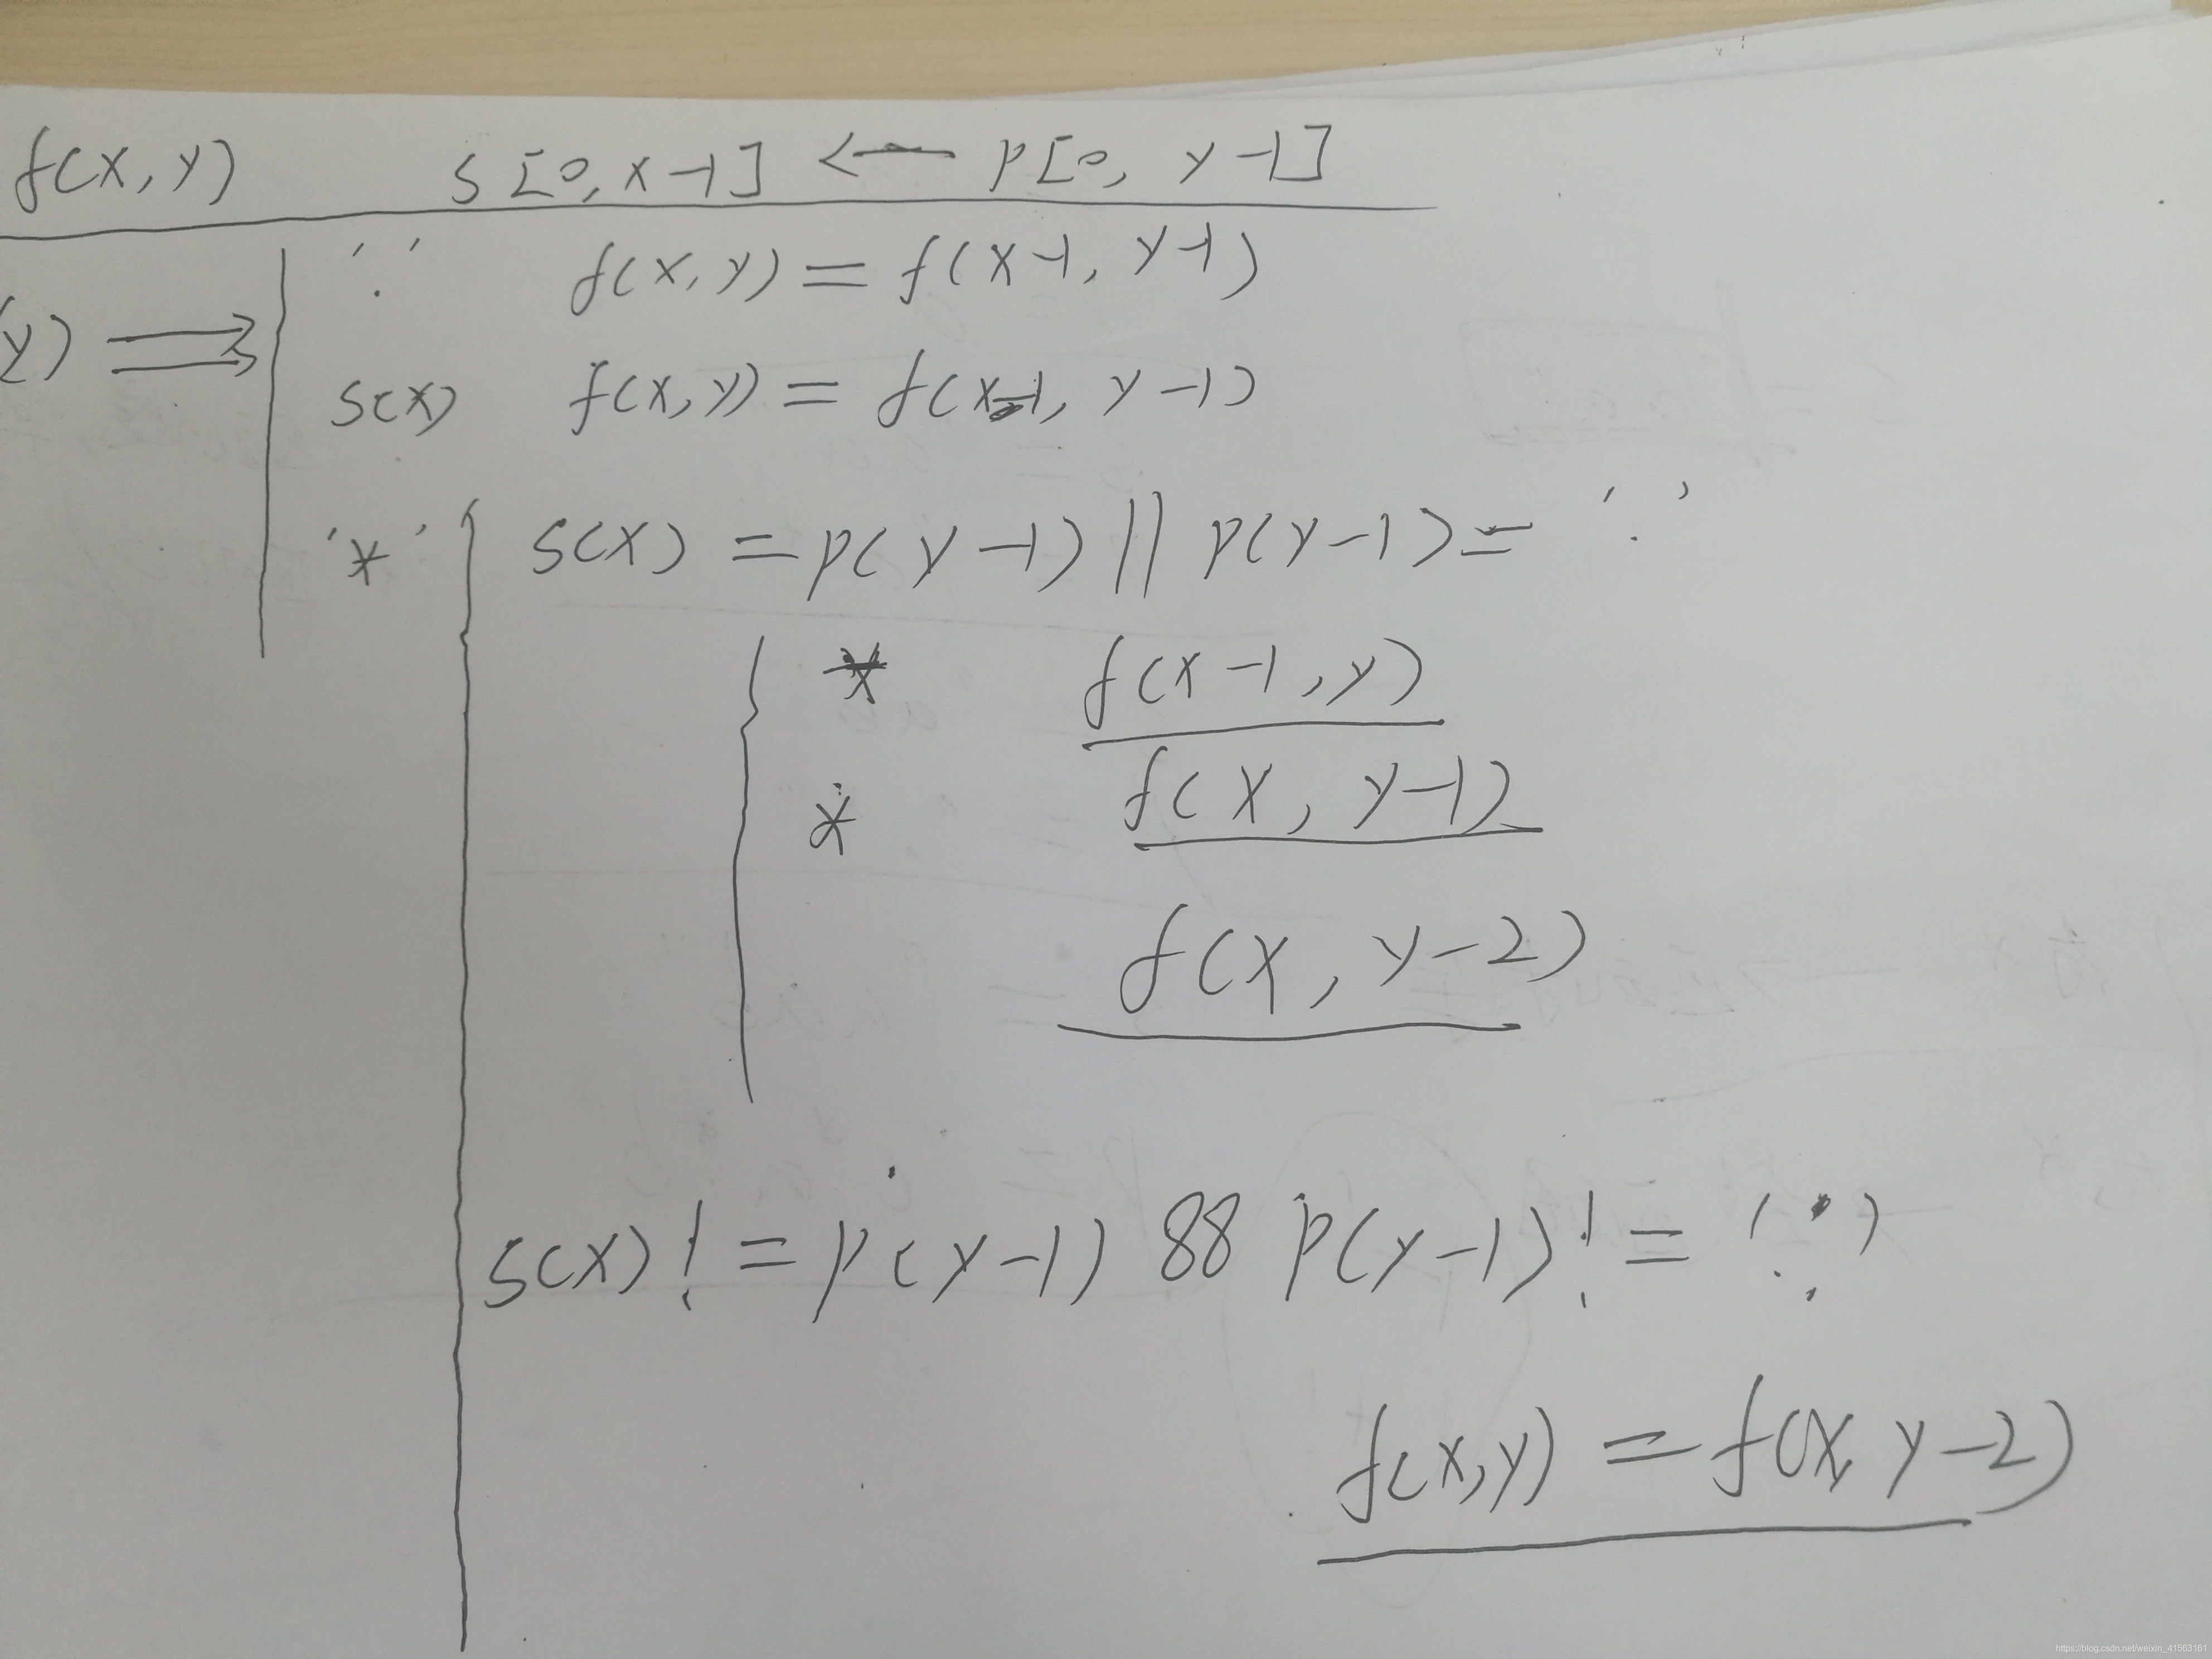 f(x,y) s[0,x-1] <— p[0, y-1]
'.' f(x,y) = f(x-1, y-1)
y) ⟹
s(x) f(x,y) = f(x-1, y-1)
'*' s(x) = p(y-1) || p(y-1) = '.'
* f(x-1,y)
* f(x, y-1)
f(x, y-2)
s(x) != p(y-1) && p(y-1) != '.'
f(x,y) = f(x, y-2)
https://blog.csdn.net/weixin_41563161